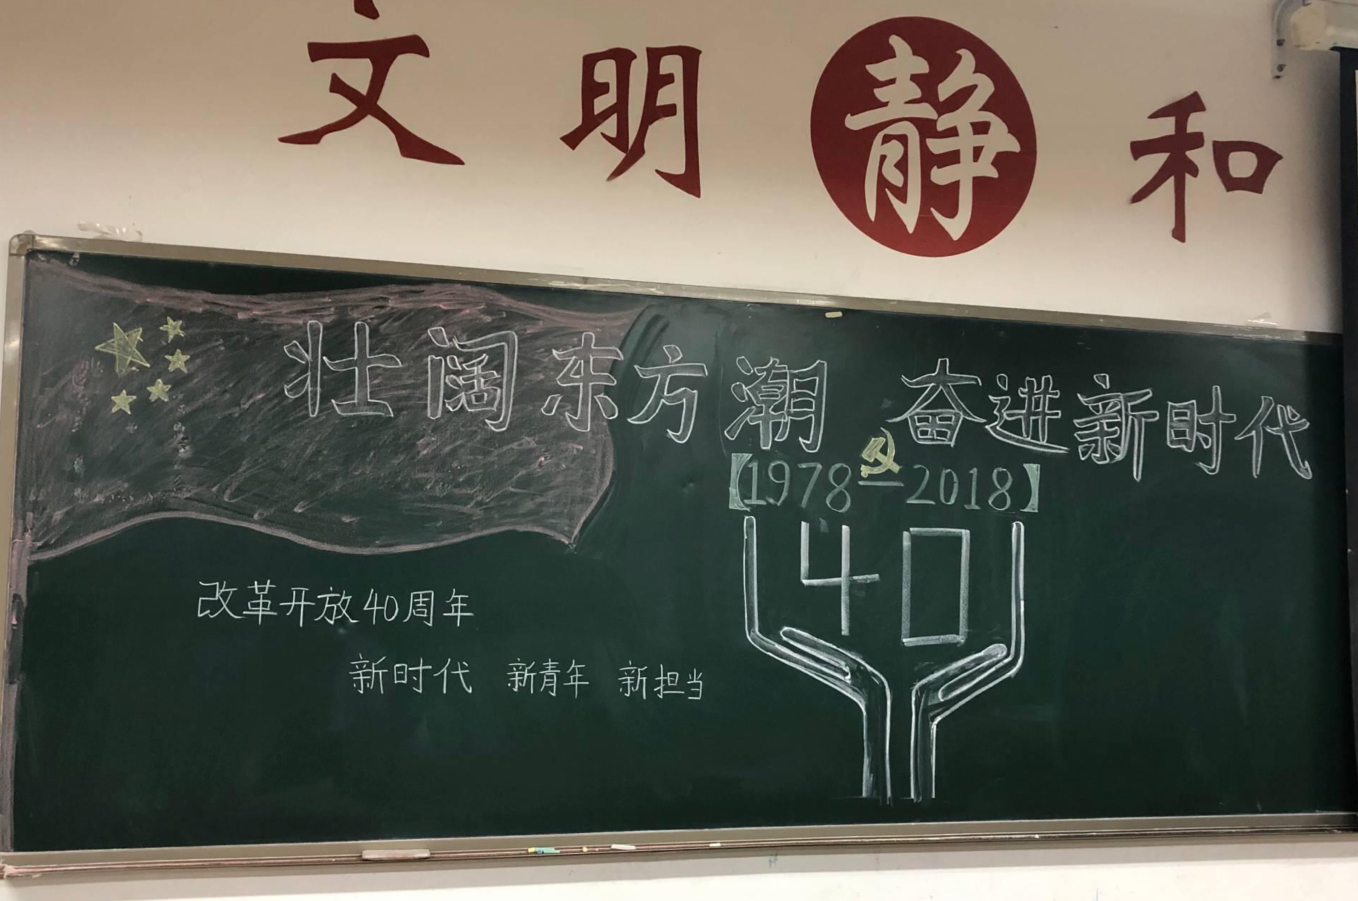 文明静和
壮阔东方潮 奋进新时代
【1978—2018】
40
改革开放40周年
新时代 新青年 新担当